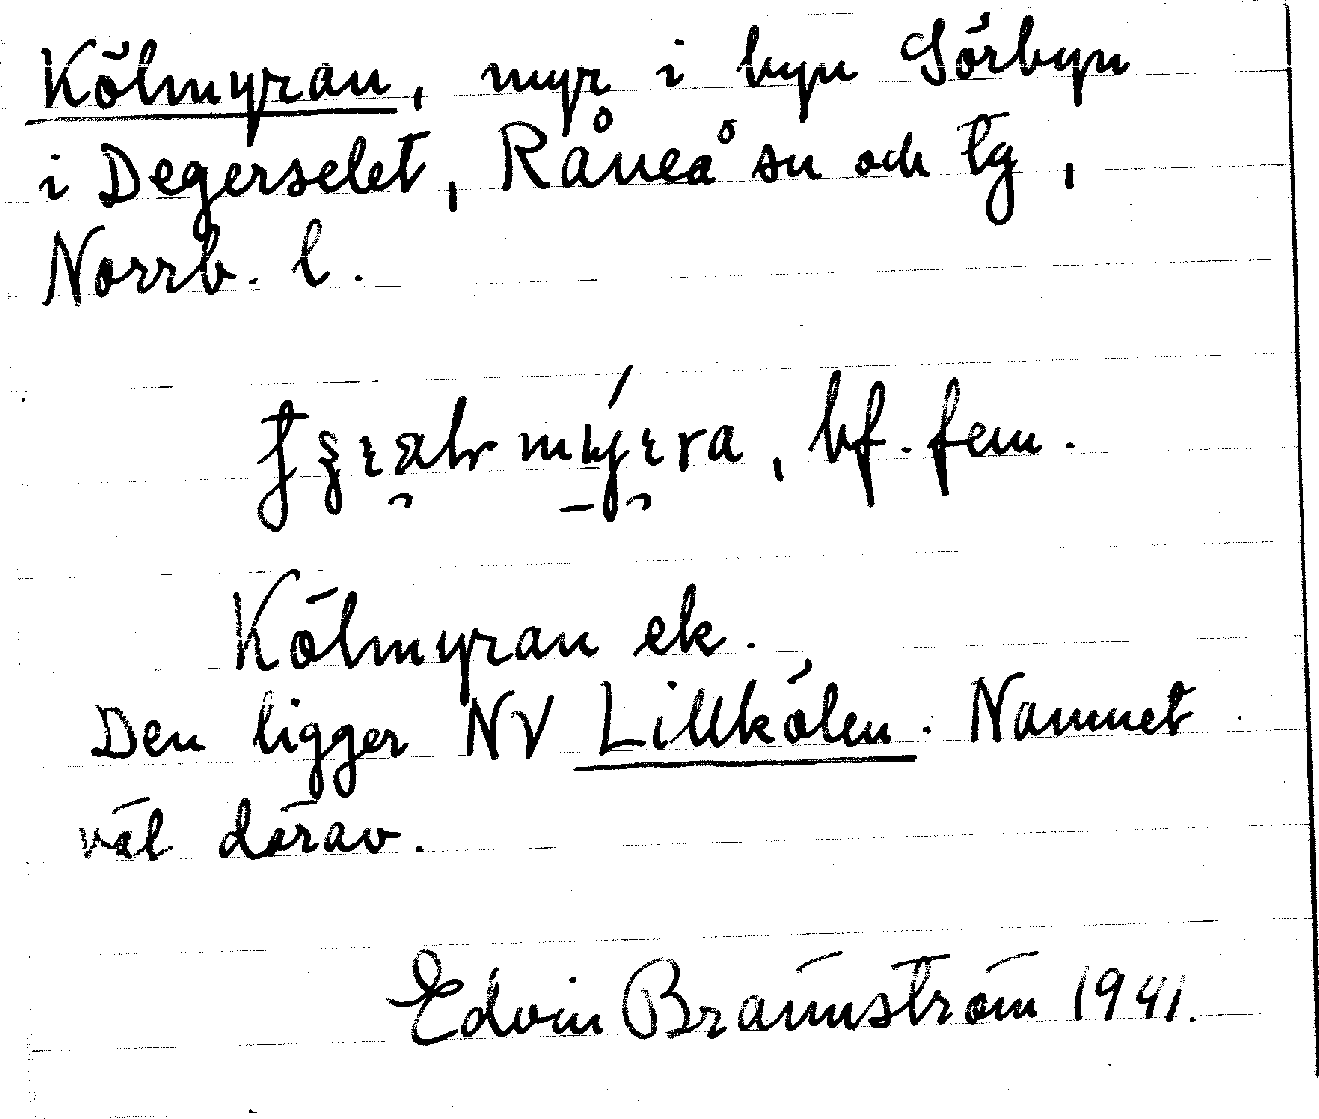 Kölmyran, myr i byn Sörbyn
i Degerselet, Råneå sn och tg,
Norrb. l.
bf. fem.
Kölmyran ek.
Den ligger NV Lillkölen. Namnet
väl därav.
Edvin Brännström 1941.